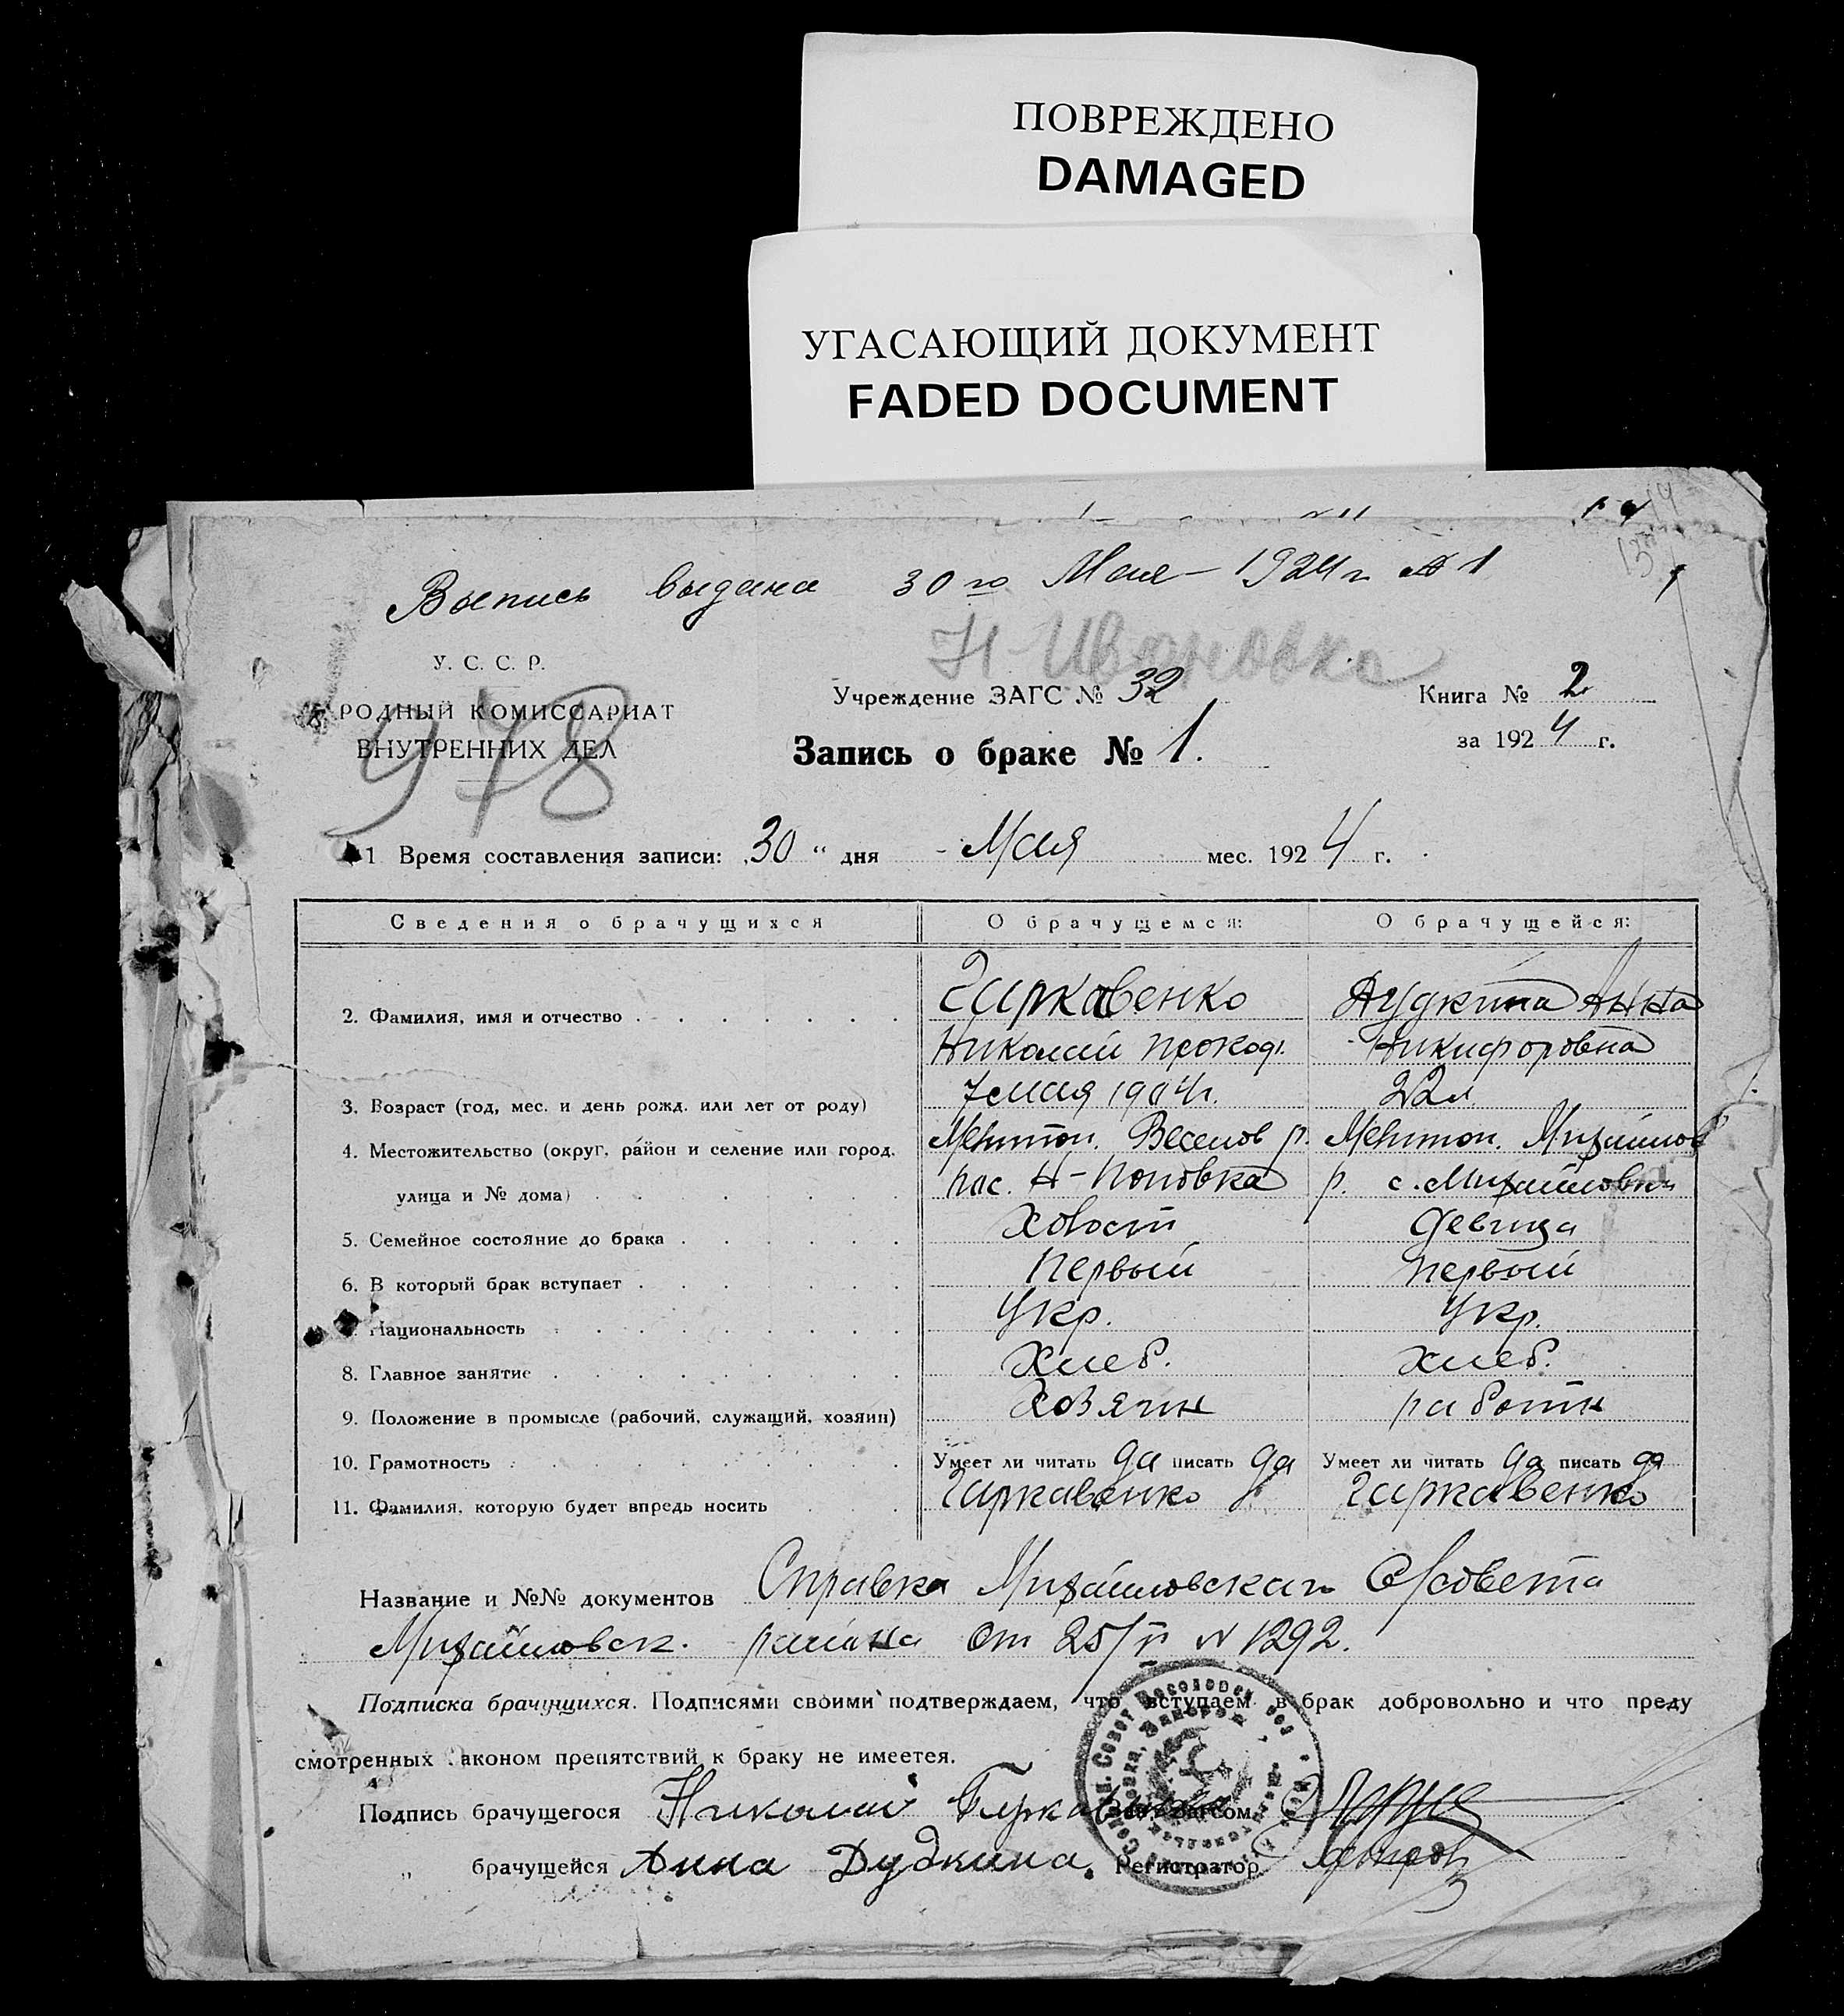 ПОВРЕЖДЕНО
DAMAGED
УГАСАЮЩИЙ ДОКУМЕНТ
FADED DOCUMENT
Выпись выдана 30го Мая 1924 г № 1
Н Ивановка
У. С. С. Р.
РОДНЫЙ КОМИССАРИАТ
ВНУТРЕННИХ ДЕЛ
978
Учреждение ЗАГС № 32
Книга № 2
Запись о браке № 1.
за 1924 г.
1 Время составления записи: „30“ дня Мая мес. 1924 г.
Сведения о брачущихся О брачущемся: О брачущейся:
2. Фамилия, имя и отчество Гаркавенко Дудкина Анна
Николай Прокоф. Никифоровна
3. Возраст (год, мес. и день рожд. или лет от роду) 7 мая 1904 г. 22 л
4. Местожительство (округ, район и селение или город, Мелитоп. Веселов р. Мелитоп. Михайлов
улица и № дома) пос. Н-Поповка р. с. Михайловка
5. Семейное состояние до брака Холост девица
6. В который брак вступает Первый первый
Национальность Укр. Укр.
8. Главное занятие Хлеб. хлеб.
9. Положение в промысле (рабочий, служащий, хозяин) Хозяин работн
10. Грамотность Умеет ли читать да писать да Умеет ли читать да писать да
11. Фамилия, которую будет впредь носить Гаркавенко Гаркавенко
Название и №№ документов Справка Михайловскаго С/совета
Михайловск. района от 25/V N 1292.
Подписка брачущихся. Подписями своими подтверждаем, что вступаем в брак добровольно и что преду
смотренных аконом препятствий к браку не имеется.
Подпись брачущегося Николай Гаркавенко Загсом
„ брачущейся Анна Дудкина. Регистратор